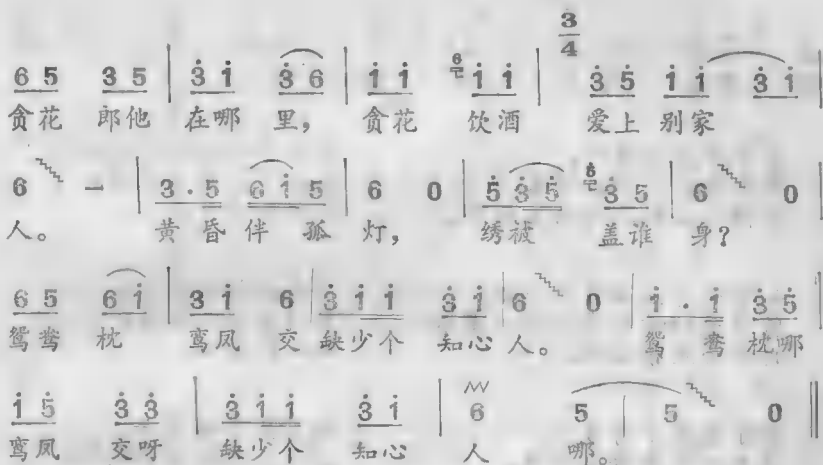 3/4
6 5 3 5 | 3̇ 1̇ 3̇ 6 | 1̇ 1̇ 1̇ 1̇ | 3̇ 5̇ 1̇ 1̇ 3̇ 1̇ |
贪花 郎他 在哪 里, 贪花 饮酒 爱上 别家
6 - | 3 · 5 6 1̇ 5 | 6 0 | 5̇ 3̇ 5̇ 3̇ 5 | 6 0 |
人。 黄昏伴孤 灯, 绣被 盖谁 身?
6 5 6 1̇ | 3 1̇ 6 | 3̇ 1̇ 1̇ 3̇ 1̇ | 6 0 | 1̇ · 1̇ 3̇ 5̇ |
鸳鸯 枕 鸾凤 交 缺少个 知心 人。 鸳鸯 枕哪
1̇ 5̇ 3̇ 3̇ | 3̇ 1̇ 1̇ 3̇ 1̇ | 6 5 | 5 0 ‖
鸾凤 交呀 缺少个 知心 人 哪。